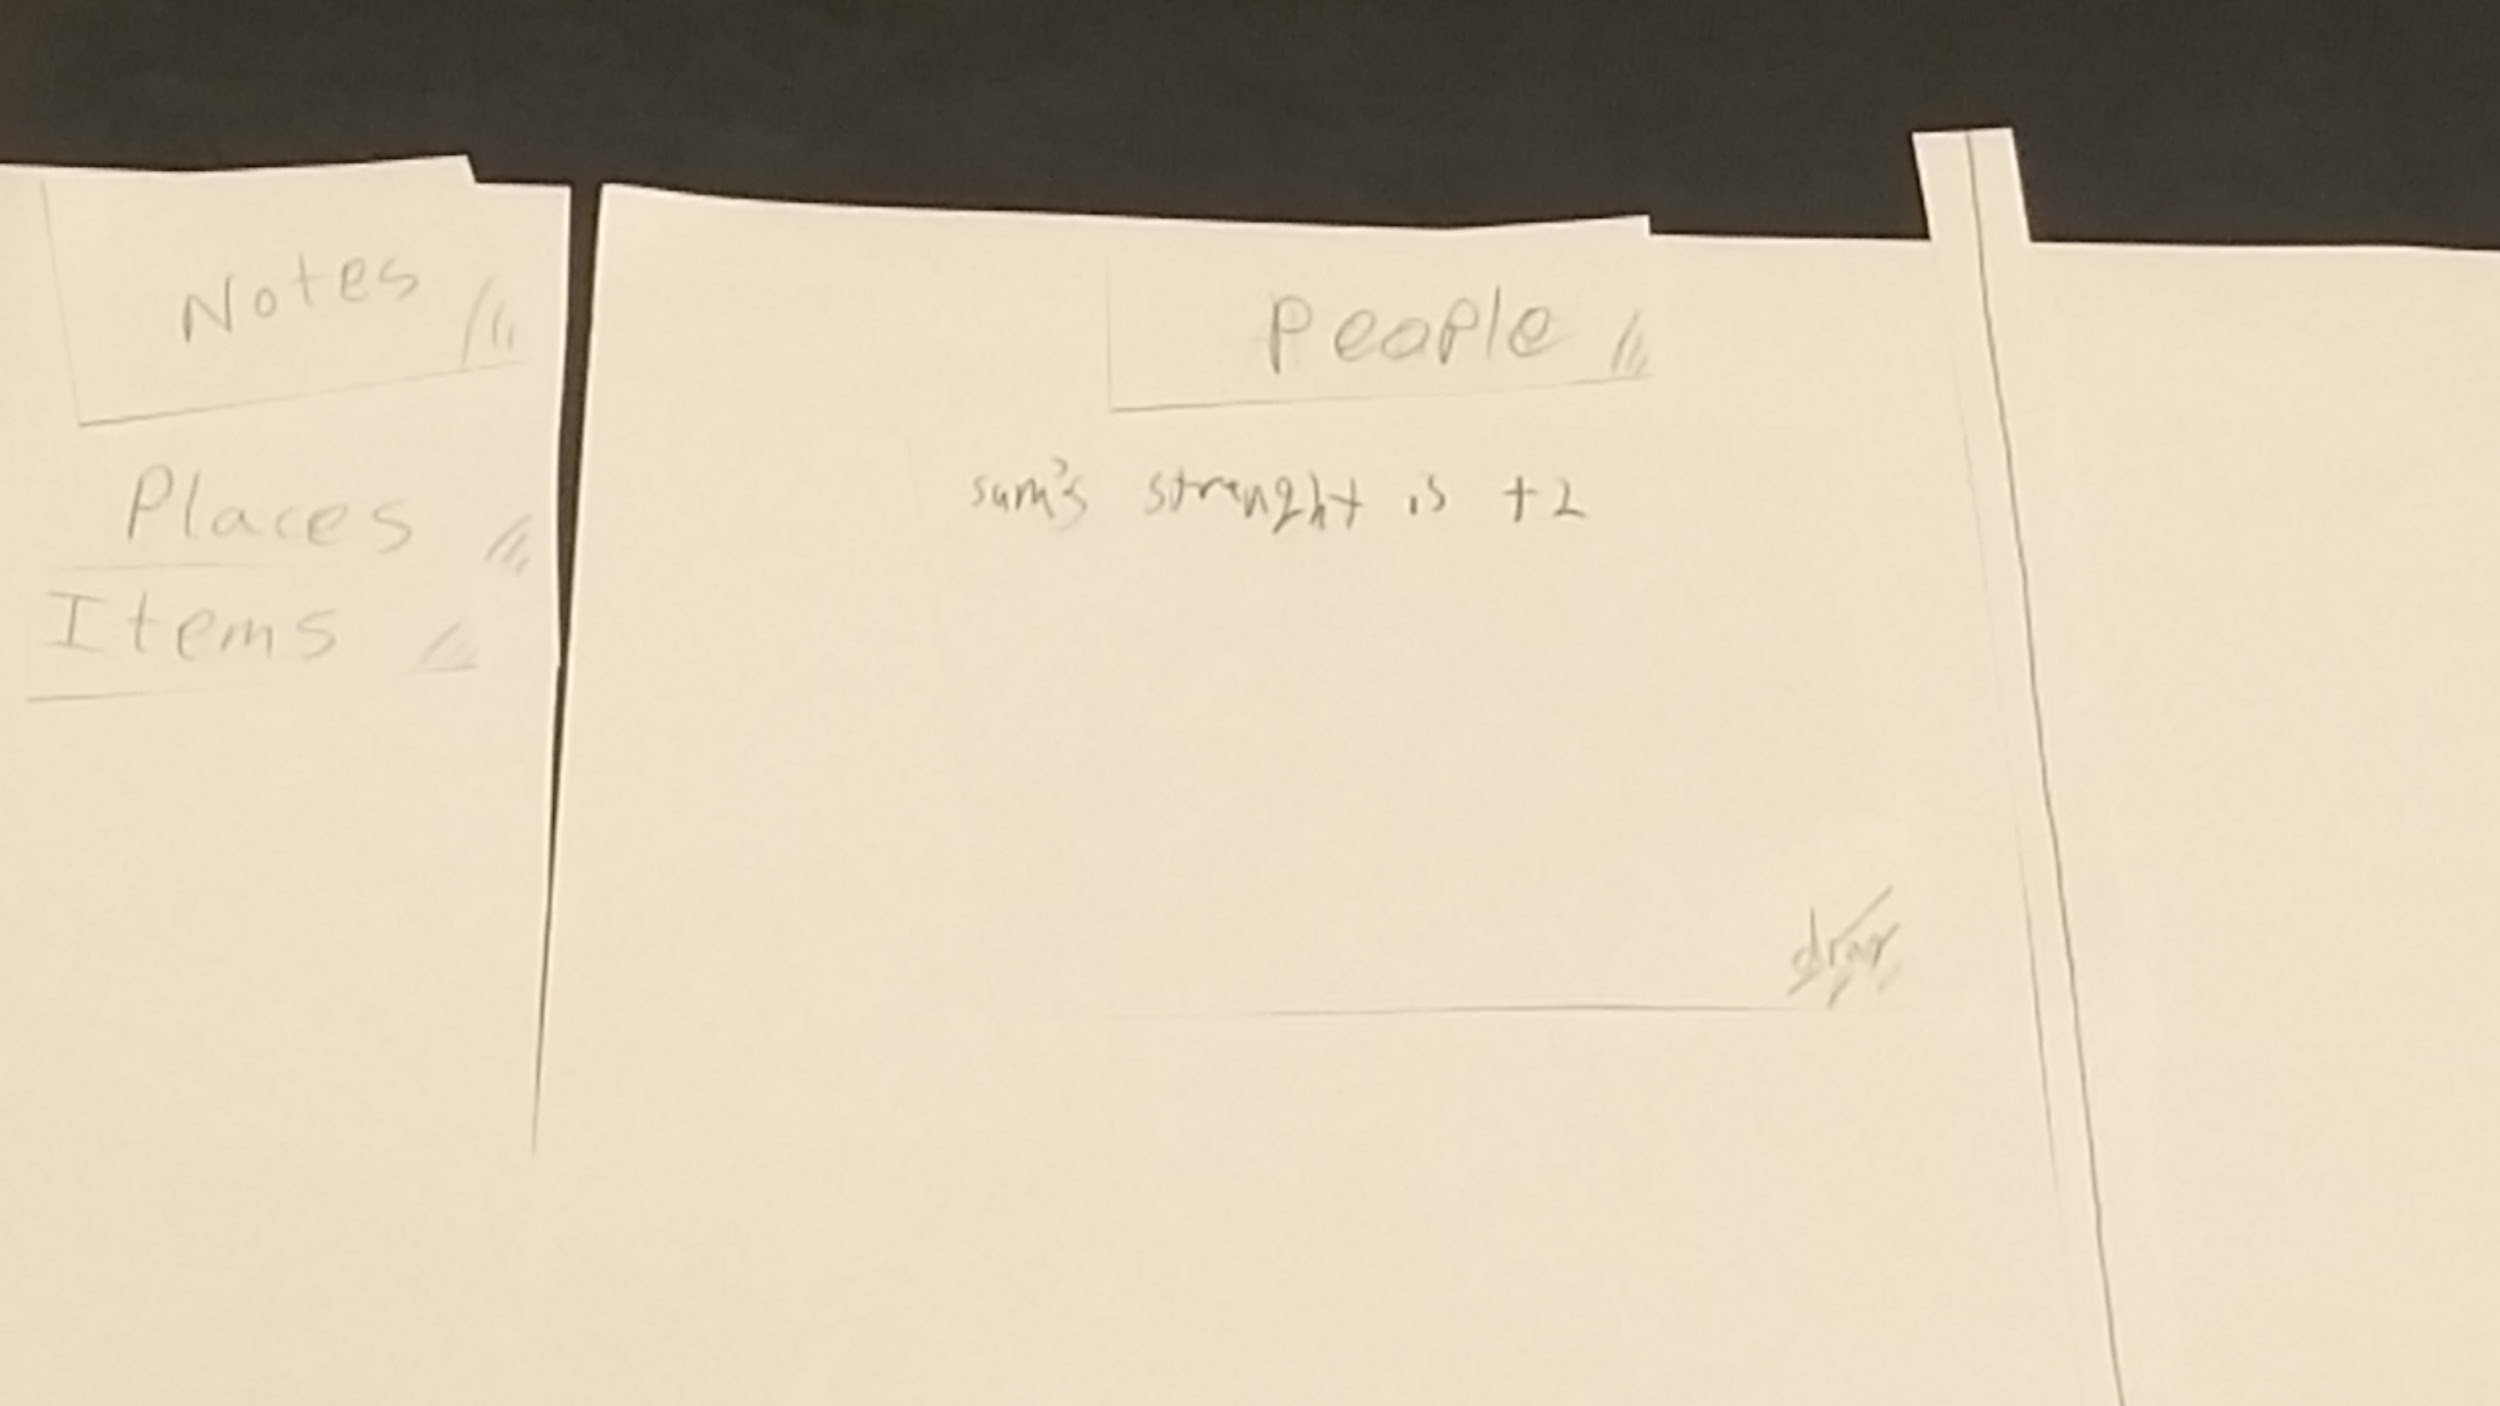 Notes
Places
Items
People
sam's strenght is +2